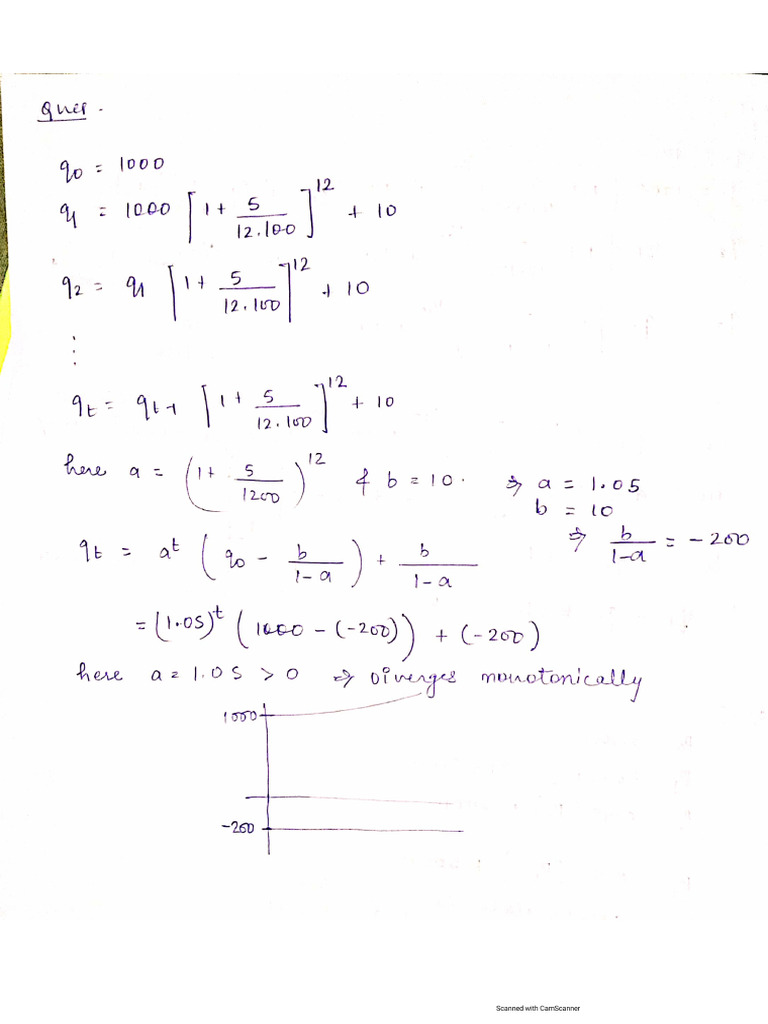 Ques.
q₀ = 1000
q₁ = 1000 [1 + 5/12.100]^12 + 10
q₂ = q₁ [1 + 5/12.100]^12 + 10
⋮
qₜ = qₜ₋₁ [1 + 5/12.100]^12 + 10
here a = (1 + 5/1200)^12 & b = 10. ⇒ a = 1.05
b = 10
⇒ b/1-a = -200
qₜ = aᵗ (q₀ - b/1-a) + b/1-a
= (1.05)ᵗ (1000 - (-200)) + (-200)
here a = 1.05 > 0 ⇒ Diverges monotonically
1000
-200
Scanned with CamScanner